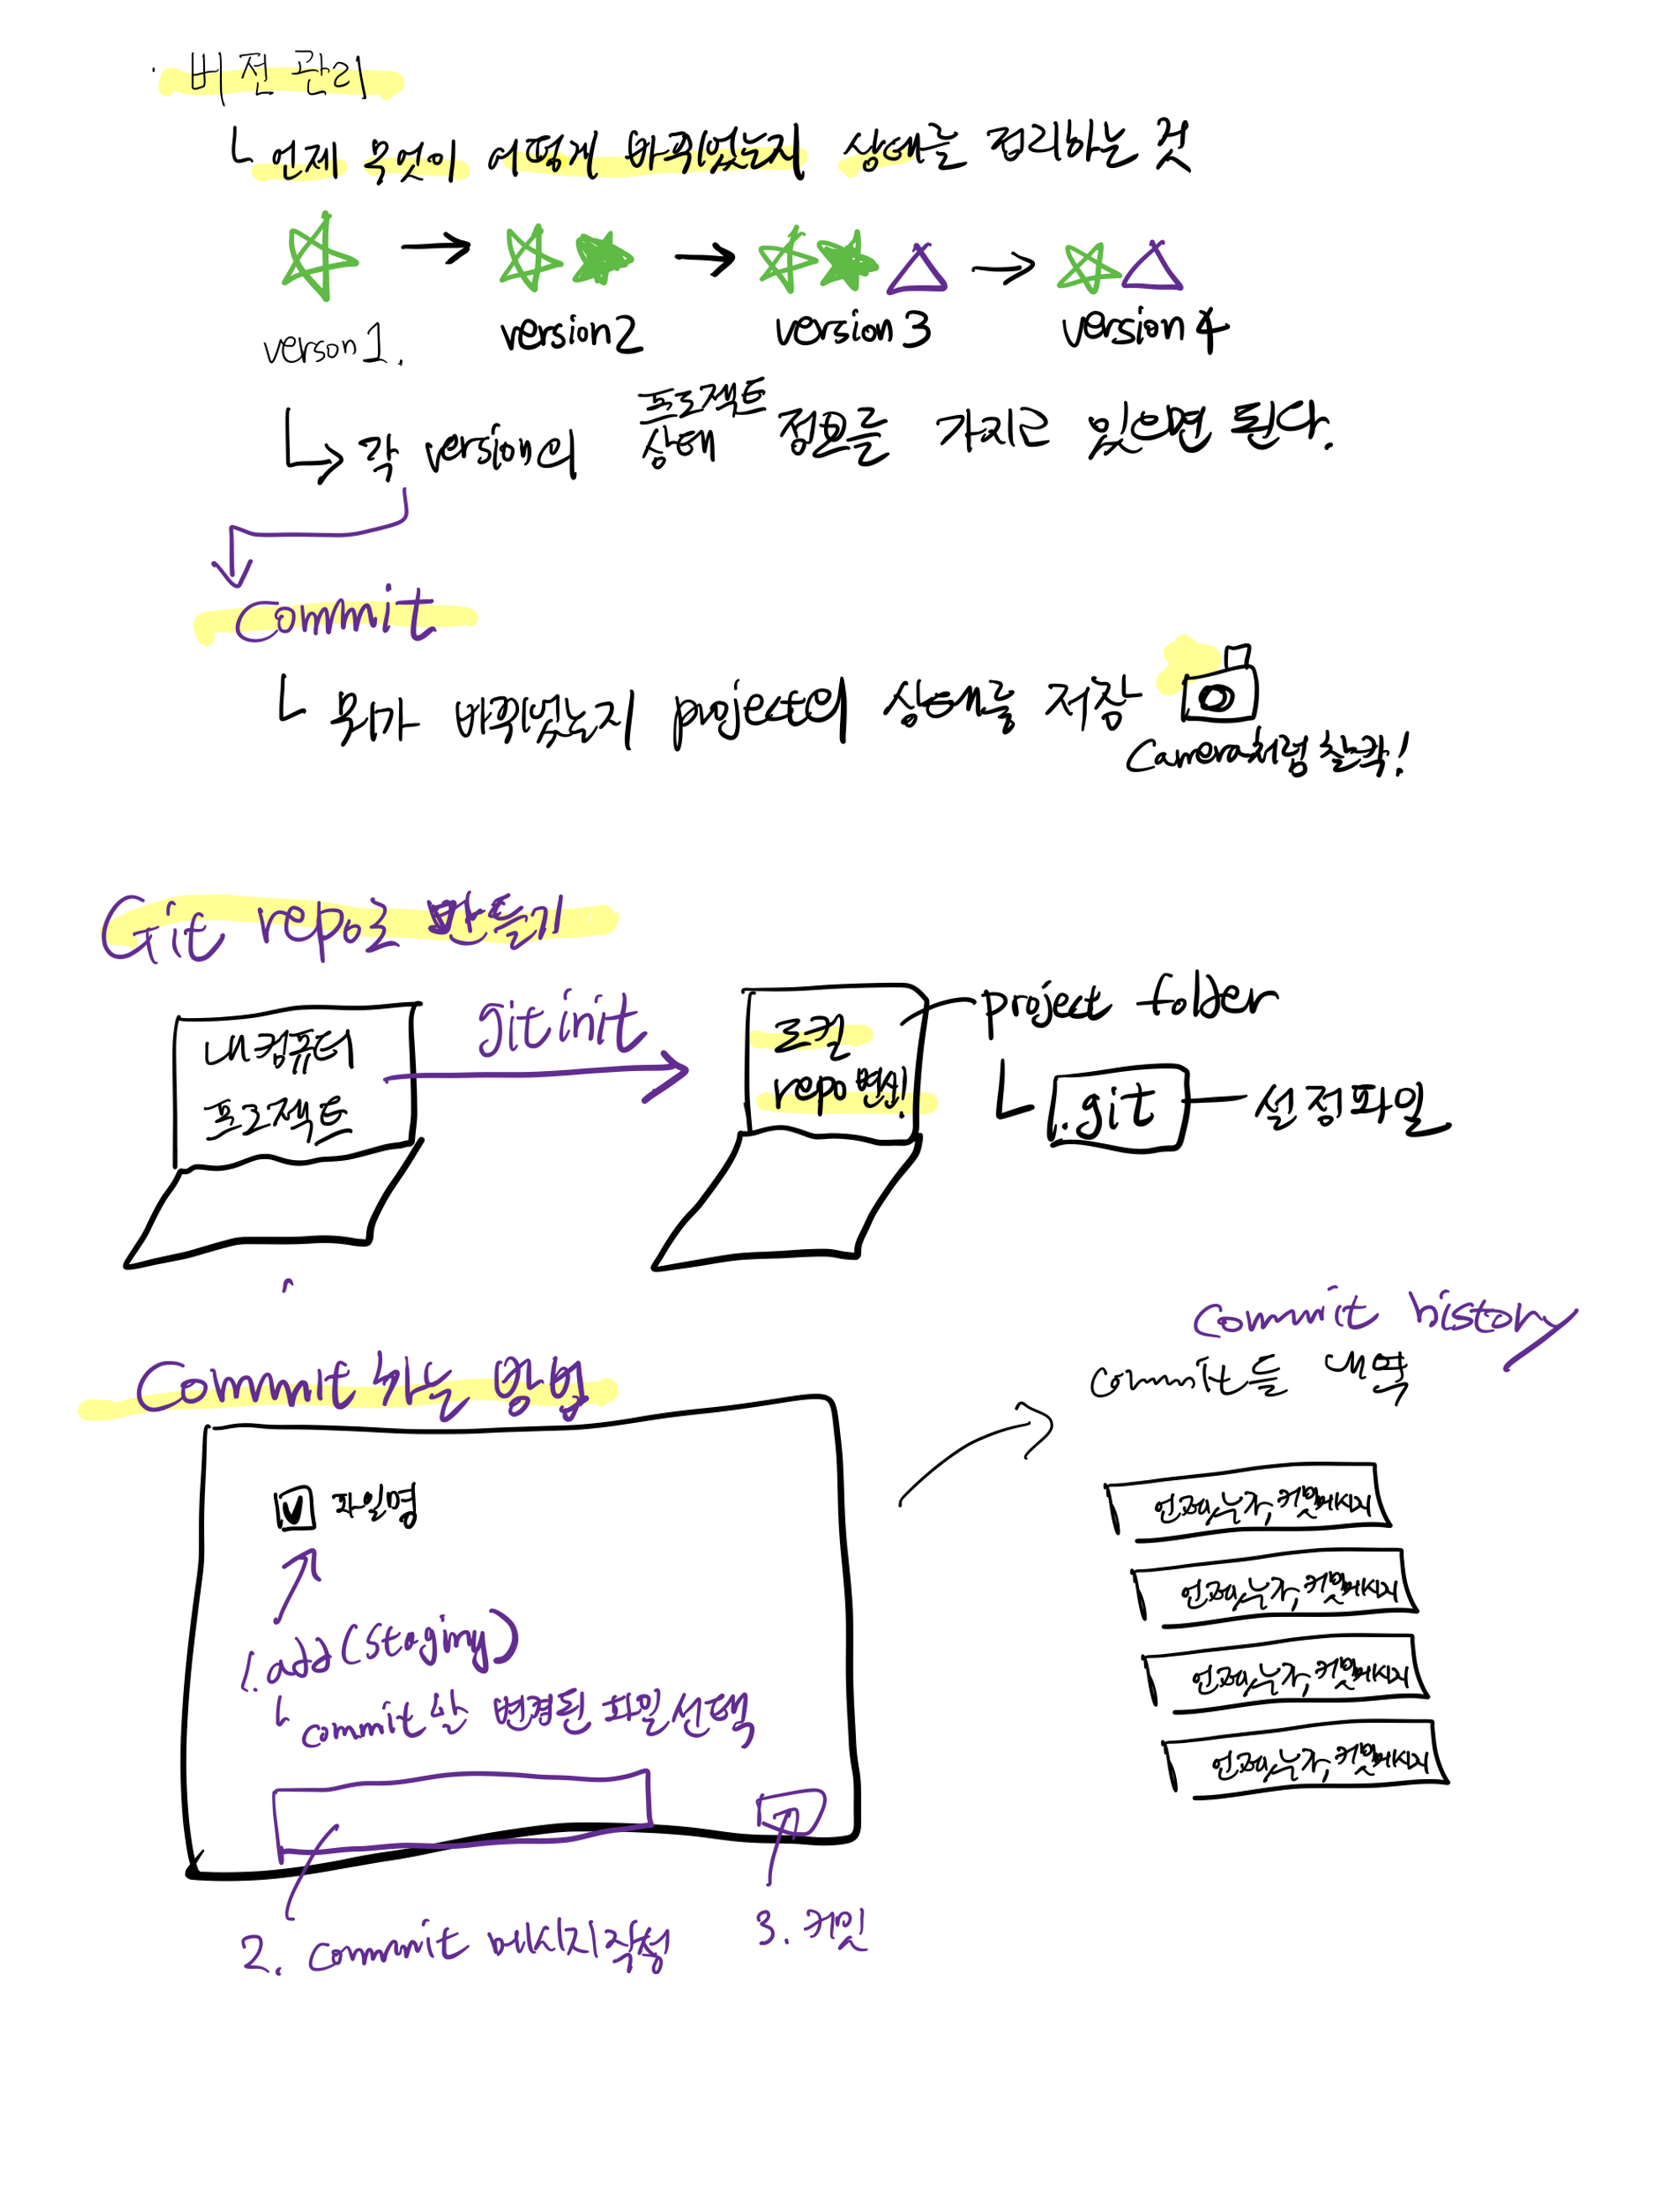 · 버전 관리
ㄴ 언제 무엇이 어떻게 바뀌었는지 상태를 정리하는 것
version 1.
version2
version 3
version 4
각 version의 프로젝트 상태 정보를 가지고 있으면 된다.
Commit
ㄴ 뭐가 바뀌었는지 project의 상태를 저장
Camera처럼 찰칵!
Git repo로 만들기
내 컴퓨터
프로젝트
git init
로컬
repo 변신!
project folder
ㄴ .git
설정파일
Commit 하는 방법
파일명
1. add (staging)
ㄴ commit 할 변경된 파일 선택
2. commit 메시지 작성
3. 커밋
commit history
commit들 내역
언제, 누가, 커밋메시지
언제, 누가, 커밋메시지
언제, 누가, 커밋메시지
언제, 누가, 커밋메시지